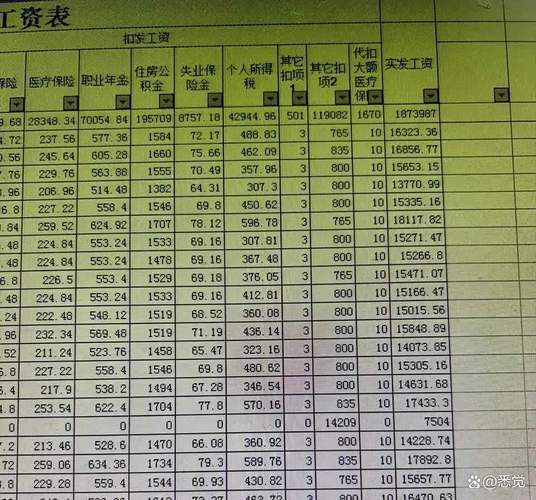 工资表
扣发工资
保险 医疗保险 职业年金 住房公积金 失业保险金 个人所得税 其它扣项1 其它扣项2 代扣大额医疗保险 实发工资
9.68 28348.34 70054.84 195709 8757.18 42944.96 501 119082 1670 1873987
4.72 237.56 577.36 1584 72.17 488.83 3 765 10 16323.36
0.56 245.64 605.28 1660 75.66 462.09 3 835 10 16856.77
7.76 229.76 563.88 1555 70.49 357.96 3 800 10 15653.15
0.96 206.96 514.48 1382 64.31 307.3 3 800 10 13770.99
6.8 227.22 558.4 1546 69.8 450.62 3 800 10 15335.16
0.84 259.52 624.92 1707 78.12 596.78 3 765 10 18117.82
.48 224.84 553.24 1533 69.16 307.81 3 800 10 15271.47
.48 224.84 553.24 1478 69.16 367.48 3 800 10 15266.8
6.8 226.5 553.4 1529 69.18 376.05 3 765 10 15471.07
.48 224.84 553.24 1533 69.16 412.81 3 800 10 15166.47
.24 222.48 548.12 1519 68.52 360.08 3 800 10 15015.56
.96 232.34 569.48 1519 71.19 436.14 3 800 10 15848.89
.52 211.24 523.76 1458 65.47 323.16 3 800 10 14073.85
6.8 227.22 558.4 1546 69.8 480.62 3 800 10 15305.16
6.4 217.9 538.2 1494 67.28 346.54 3 800 10 14631.68
4.8 253.54 622.4 1704 77.8 570.16 3 835 10 17433.3
0 0 0 0 0 0 0 14209 0 7504
7.2 213.46 528.6 1470 66.08 360.92 3 800 10 14228.74
.72 259.06 634.36 1734 79.3 589.76 3 835 10 17892.8
3.8 229.28 559.4 1544 69.93 430.82 3 765 10 15657.77
463.72 3 800 10 16470.63
@悉觉